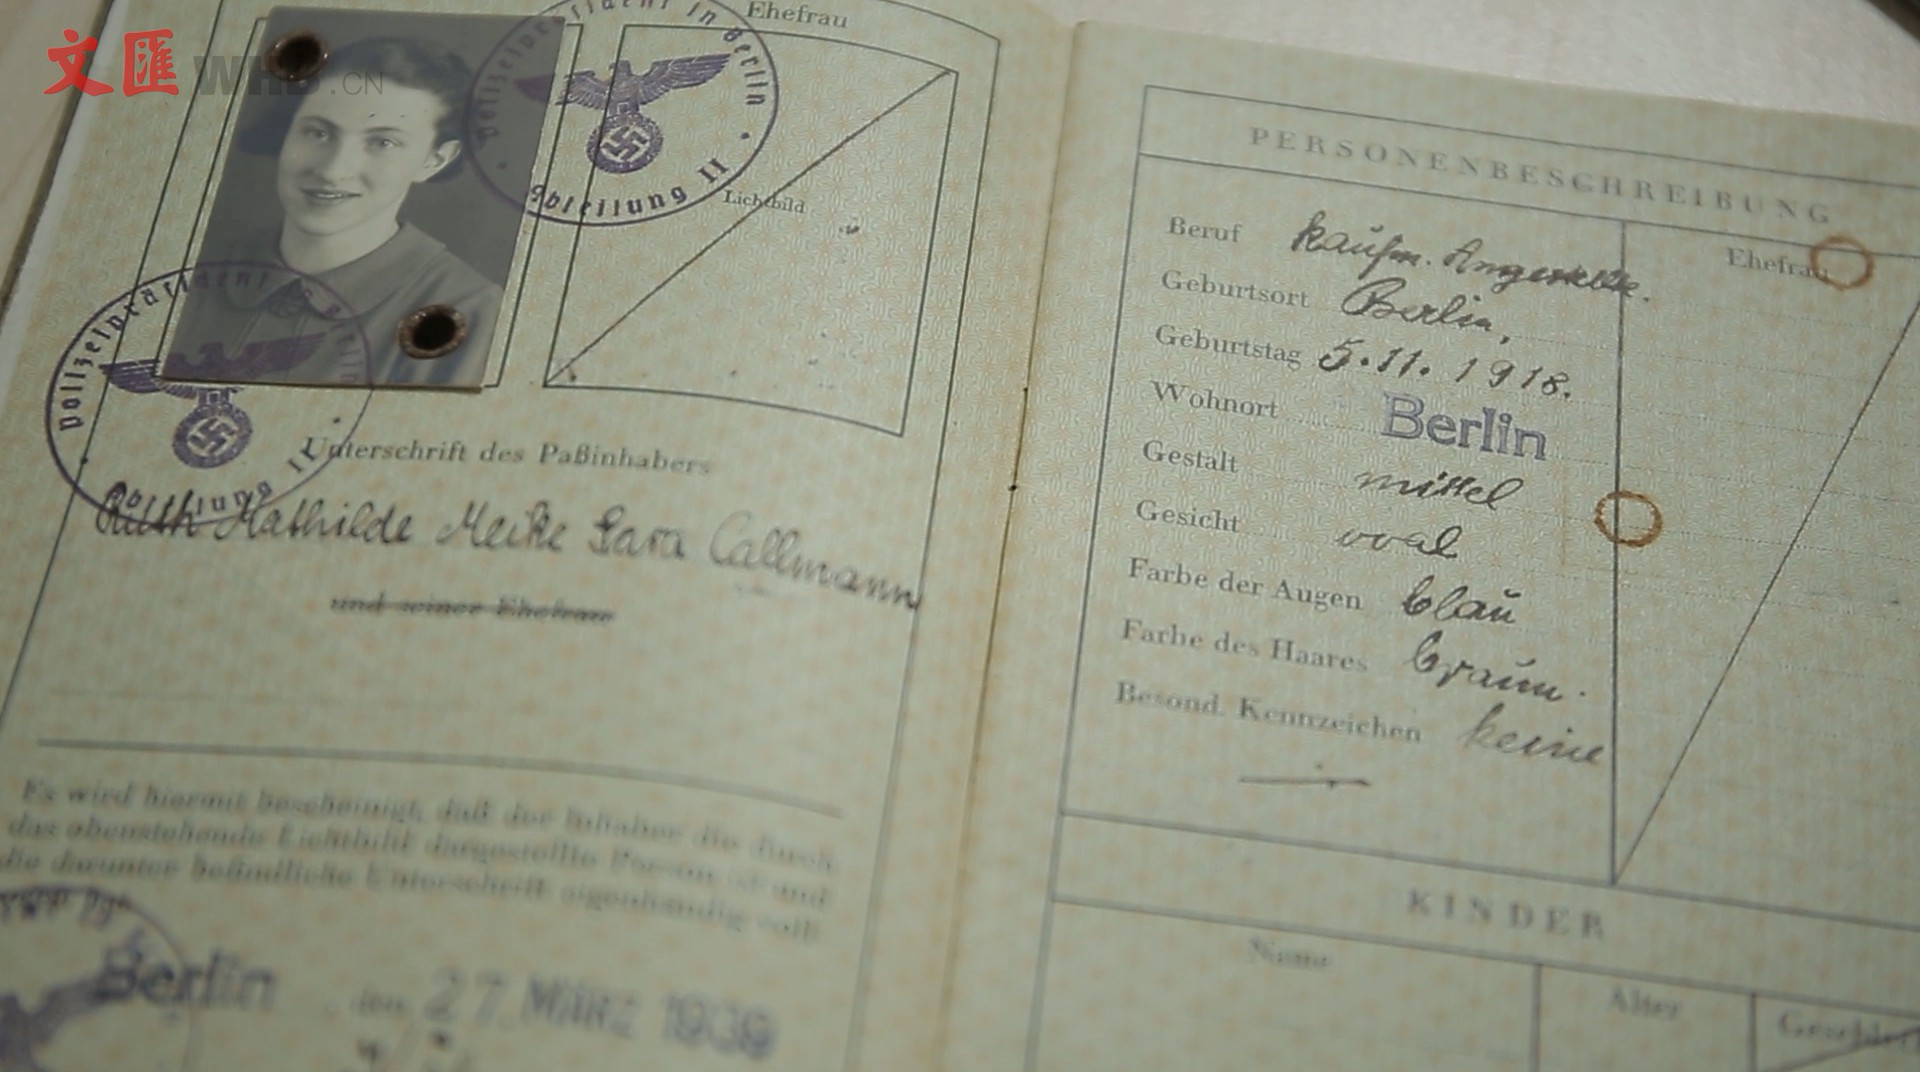 文匯 WHB.CN
Ehefrau
Polizeipräsident in Berlin
Abteilung II
Lichtbild
Polizeipräsident in Berlin
Abteilung II
Unterschrift des Paßinhabers
Ruth Mathilde Meike Sara Callmann
und seiner Ehefrau
Es wird hiermit bescheinigt, daß der Inhaber die durch
das obenstehende Lichtbild dargestellte Person ist und
die darunter befindliche Unterschrift eigenhändig voll-
Berlin den 27. MÄRZ 1939
PERSONENBESCHREIBUNG
Ehefrau
Beruf kaufm. Angestellte.
Geburtsort Berlin,
Geburtstag 5.11.1918.
Wohnort Berlin
Gestalt mittel
Gesicht oval
Farbe der Augen blau
Farbe des Haares braun.
Besond. Kennzeichen keine
KINDER
Name Alter